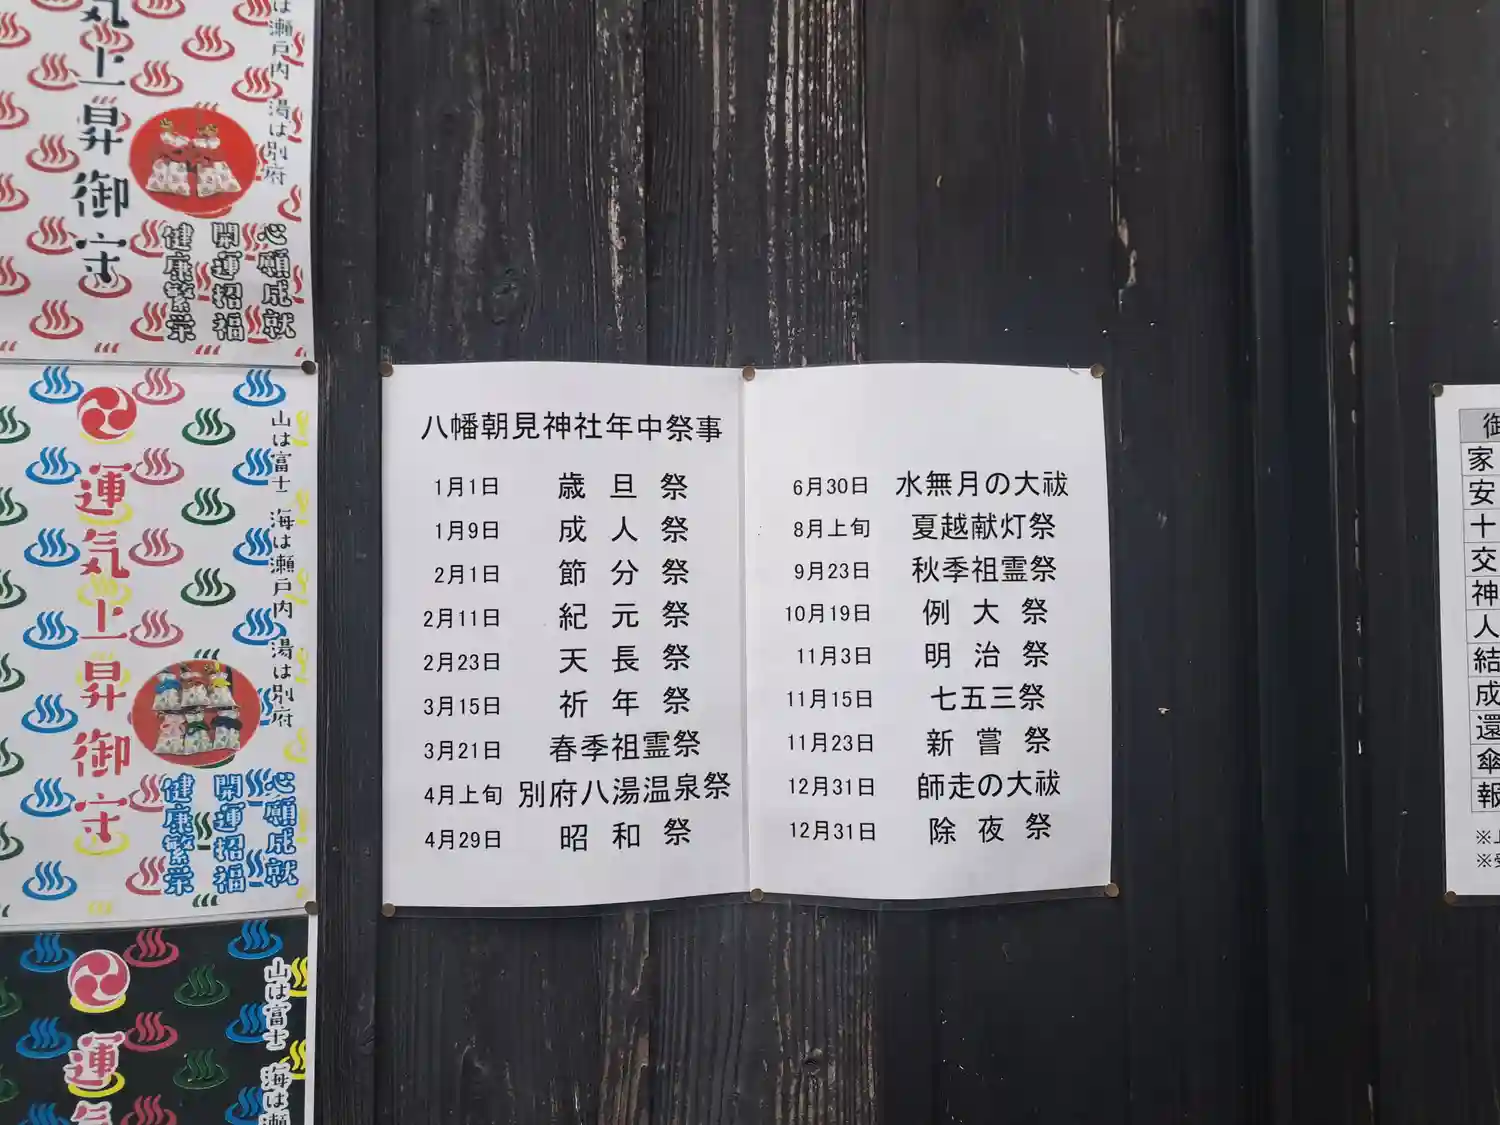 気上昇御守
は瀬戸内 湯は別府
心願成就
開運招福
健康繁栄
運気上昇御守
山は富士 海は瀬戸内 湯は別府
心願成就
開運招福
健康繁栄
運気
山は富士 海は瀬
八幡朝見神社年中祭事
1月1日 歳旦祭
1月9日 成人祭
2月1日 節分祭
2月11日 紀元祭
2月23日 天長祭
3月15日 祈年祭
3月21日 春季祖霊祭
4月上旬 別府八湯温泉祭
4月29日 昭和祭
6月30日 水無月の大祓
8月上旬 夏越献灯祭
9月23日 秋季祖霊祭
10月19日 例大祭
11月3日 明治祭
11月15日 七五三祭
11月23日 新嘗祭
12月31日 師走の大祓
12月31日 除夜祭
御
家
安
十
交
神
人
結
成
還
傘
報
※上
※